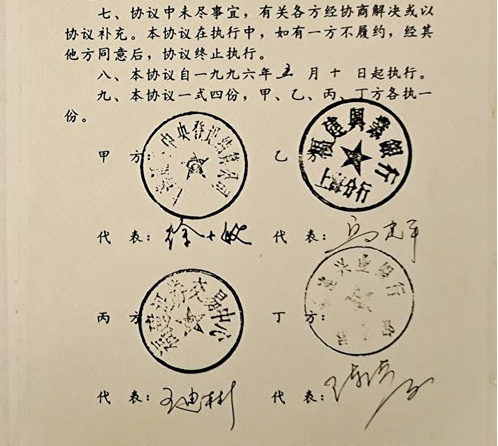 七、协议中未尽事宜，有关各方经协商解决或以
协议补充。本协议在执行中，如有一方不履约，经其
他方同意后，协议终止执行。
八、本协议自一九九六年五月十日起执行。
九、本协议一式四份，甲、乙、丙、丁方各执一
份。
甲方：
中央登记结算公司
乙方：
福建兴业银行
代表：
代表：
丙方：
证券交易中心
丁方：
兴业银行
代表：王迪彬
代表：